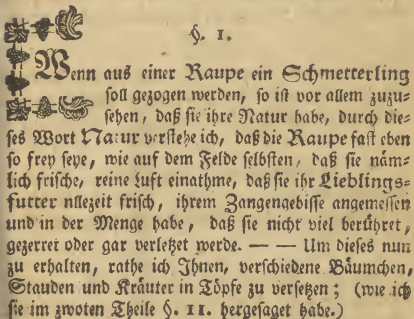 §. 1.
Wenn aus einer Raupe ein Schmetterling
soll gezogen werden, so ist vor allem zuzu-
sehen, daß sie ihre Natur habe, durch die-
ses Wort Natur verstehe ich, daß die Raupe fast eben
so frey seye, wie auf dem Felde selbsten, daß sie näm-
lich frische, reine Luft einathme, daß sie ihr Lieblings-
futter allezeit frisch, ihrem Zangengebisse angemessen
und in der Menge habe, daß sie nicht viel berühret,
gezerret oder gar verletzet werde. — — Um dieses nun
zu erhalten, rathe ich Ihnen, verschiedene Bäumchen,
Stauden und Kräuter in Töpfe zu versetzen; (wie ich
sie im zwoten Theile §. 11. hergesaget habe.)